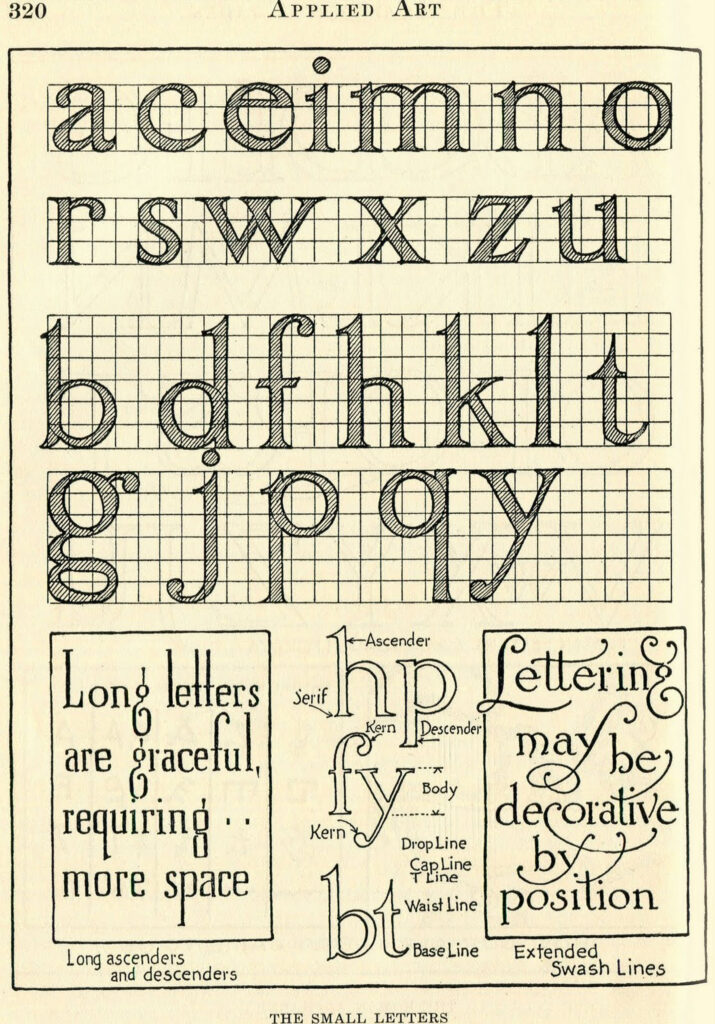 320
APPLIED ART
a c e i m n o
r s w x z u
b d f h k l t
g j p q y
Long letters
are graceful,
requiring ··
more space
Long ascenders
and descenders
hp
Ascender
Serif
Kern
Descender
fy
Body
Kern
Drop Line
Cap Line
T Line
bt
Waist Line
Base Line
Lettering
may be
decorative
by
position
Extended
Swash Lines
THE SMALL LETTERS